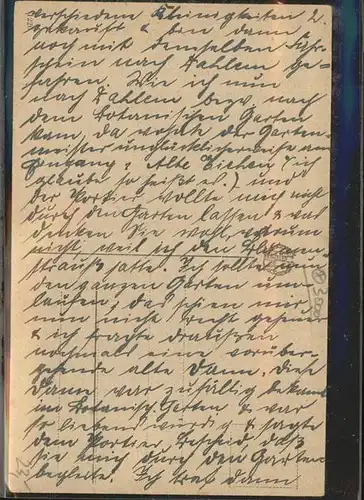 verschiedene Kleinigkeiten 2.
gekauft & bin dann
noch mit demselben Fahr-
schein nach Dahlem ge-
fahren. Wie ich nun
nach Dahlem bezw. nach
dem Botanischen Garten
kam, da wohnte der Garten-
meister unglücklicherweise am
Eingang: Alte Eichen (ich
glaube so heißt es.) und
der Portier wollte mich nicht
durch den Garten lassen & was
denken Sie wohl, warum
nicht, weil ich den Blumen-
strauß hatte. Ich sollte nun
den ganzen Garten um-
laufen, das schien mir
nun nicht recht geheuer
& ich fragte draußen
nochmals eine vorüber-
gehende alte Dame. Diese
Dame war zufällig bekannt
im Botanisch. Garten & war
so liebenswürdig & sagte
dem Portier, Bescheid, daß
sie mich durch den Garten
begleite. Ich traf dann